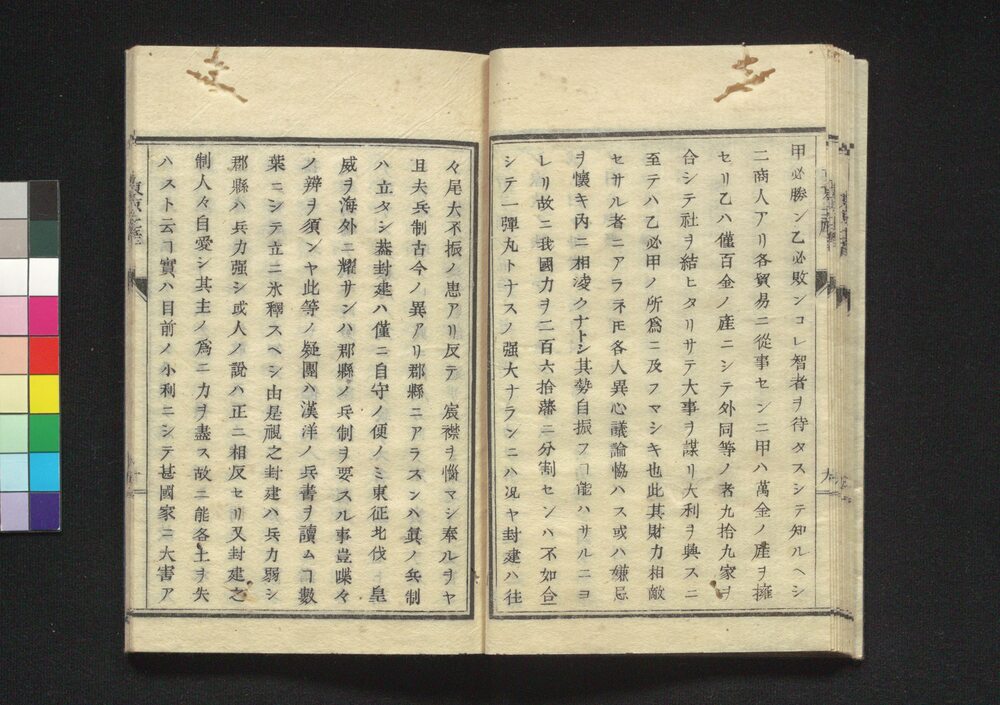 甲必勝ン乙必敗ンコレ智者ヲ待タスシテ知ルヘシ
二商人アリ各貿易ニ從事センニ甲ハ萬金ノ產ヲ擁
セリ乙ハ僅百金ノ產ニシテ外同等ノ者九拾九家ヲ
合シテ社ヲ結ヒタリサテ大事ヲ謀リ大利ヲ興スニ
至テハ乙必甲ノ所爲ニ及フマシキ也此其財力相敵
セサル者ニアラネ𪜈各人異心議論恊ハス或ハ嫌忌
ヲ懷キ内ニ相凌クナトシ其勢自振フヿ能ハサルニヨ
レリ故ニ我國力ヲ二百六拾藩ニ分割センハ不如合
シテ一彈丸トナスノ强大ナランニハ况ヤ封建ハ往
々尾大不振ノ患アリ反テ 宸襟ヲ惱マシ奉ルヲヤ
且夫兵制古今ノ異アリ郡縣ニアラスンハ眞ノ兵制
ハ立タシ蓋封建ハ僅ニ自守ノ便ノミ東征北伐 皇
威ヲ海外ニ耀サンハ郡縣ノ兵制ヲ要スル事豈喋々
ノ辨ヲ須ンヤ此等ノ疑團ハ漢洋ノ兵書ヲ讀ムヿ數
葉ニシテ立ニ氷釋スヘシ由是視之封建ハ兵力弱シ
郡縣ハ兵力强シ或人ノ說ハ正ニ相反セリ又封建之
制人々自愛シ其主ノ爲ニ力ヲ盡ス故ニ能各土ヲ失
ハスト云ヿ實ハ目前ノ小利ニシテ甚國家ニ大害ア